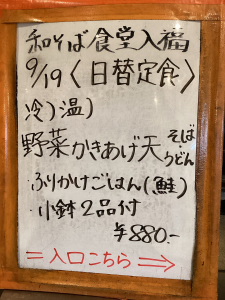 和そば食堂入福
9/19〈日替定食〉
冷)温)
野菜かきあげ天そば・うどん
・ふりかけごはん(鮭)
・小鉢2品付
¥880.-
=入口こちら⇒